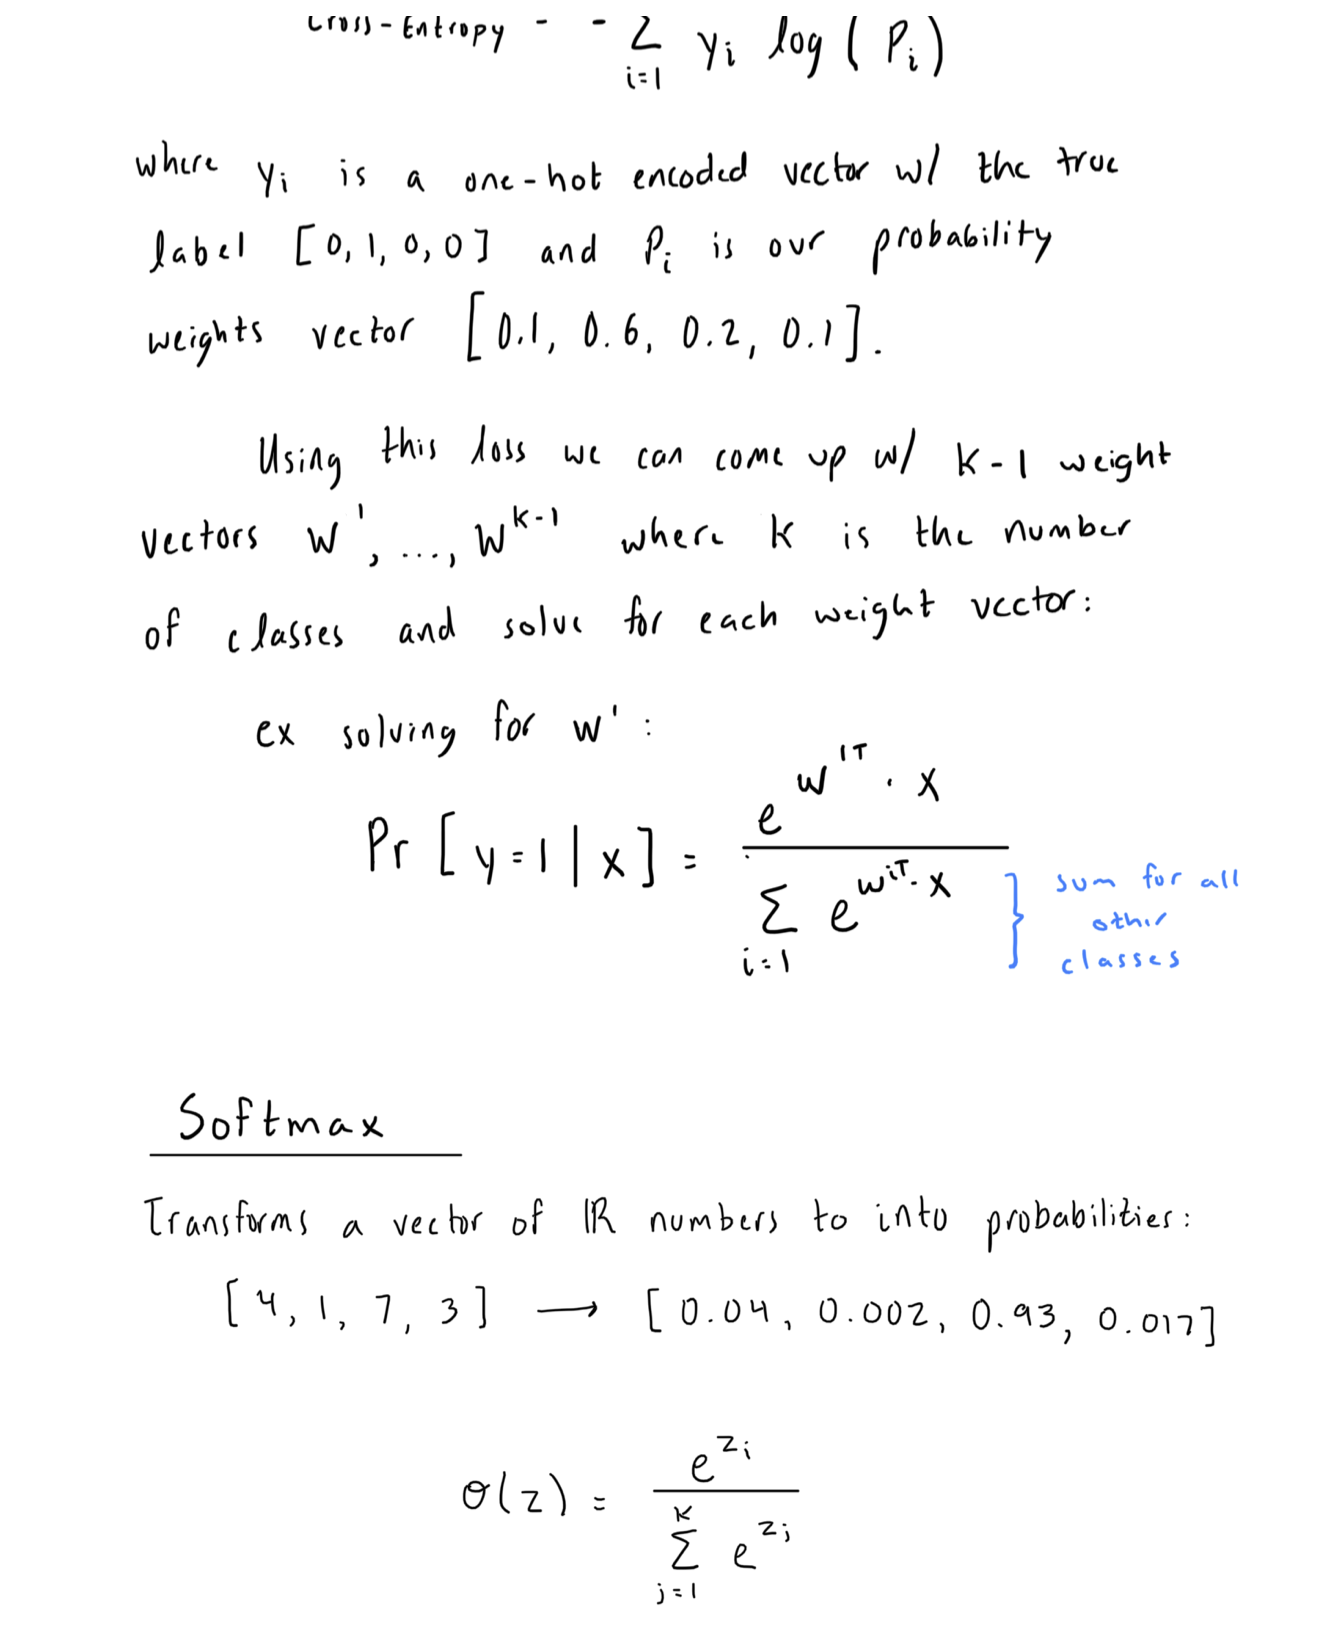 Cross-Entropy = - Σ_{i=1} y_i log(P_i)
where y_i is a one-hot encoded vector w/ the true
label [0, 1, 0, 0] and P_i is our probability
weights vector [0.1, 0.6, 0.2, 0.1].
Using this loss we can come up w/ K-1 weight
vectors w^1, ..., w^{k-1} where k is the number
of classes and solve for each weight vector:
ex solving for w^1:
Pr[y=1|x] = e^{w^{1T} · x} / Σ_{i=1} e^{w^{iT} · x} } sum for all
other
classes
Softmax
Transforms a vector of ℝ numbers to into probabilities:
[4, 1, 7, 3] → [0.04, 0.002, 0.93, 0.017]
σ(z) = e^{z_i} / Σ_{j=1}^{K} e^{z_j}